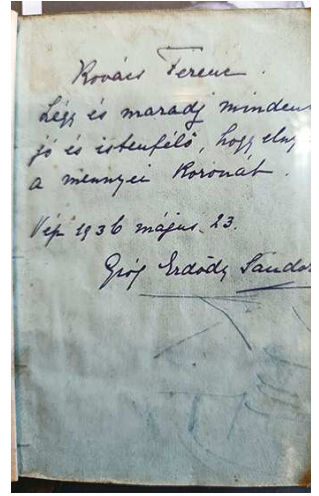 Kovács Ferenc.
Légy és maradj minden
jó és istenfélő, hogy elny
a mennyei Koronát.
Vép 1936 május 23.
Gróf Erdődy Sándor